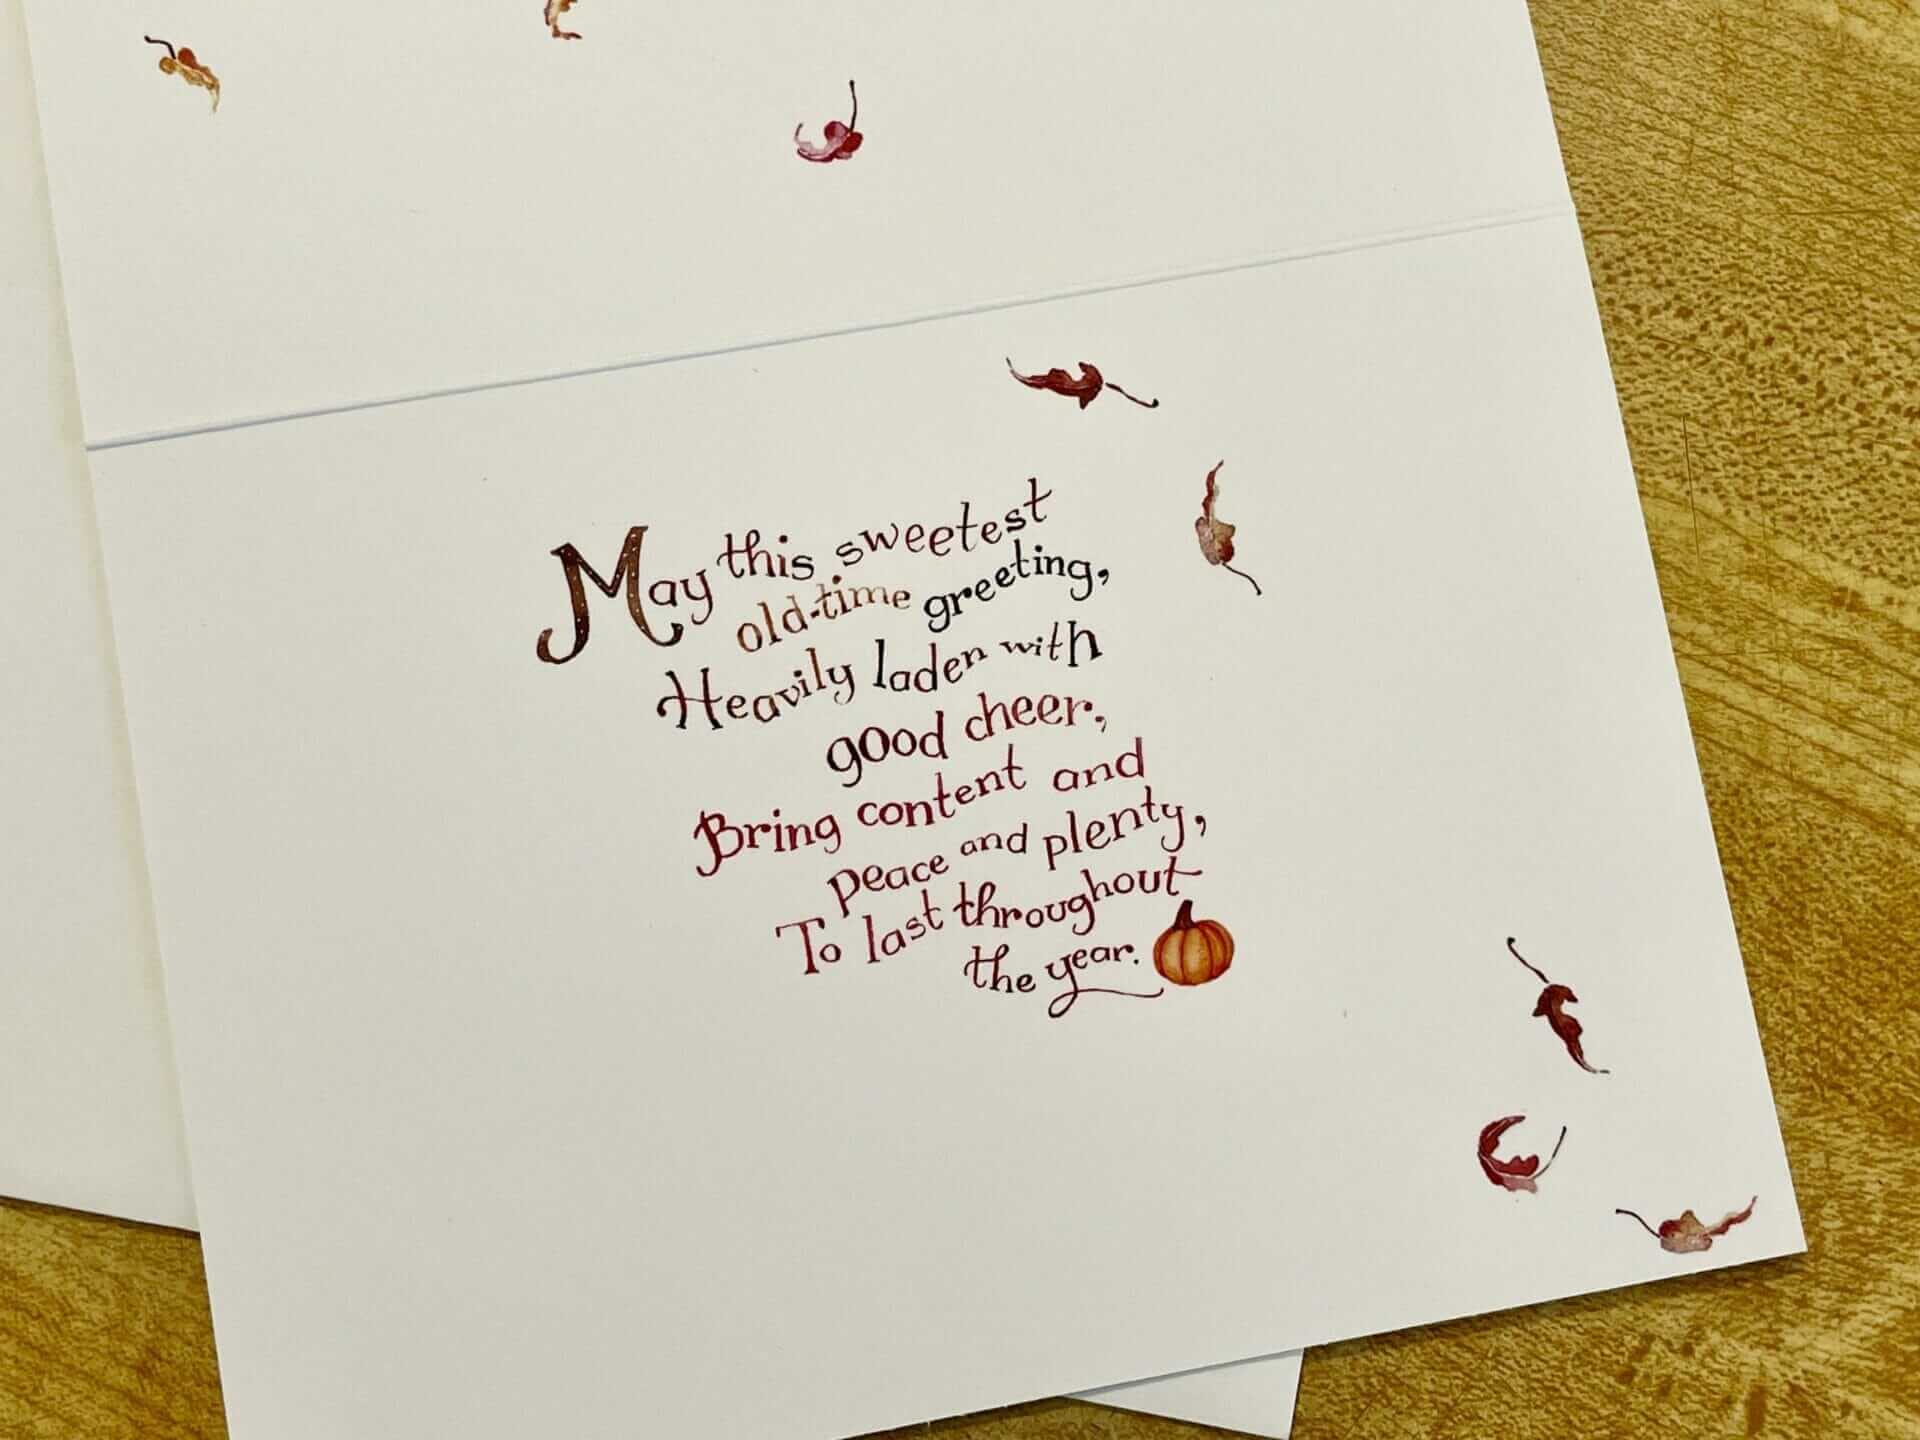 May this sweetest
old-time greeting,
Heavily laden with
good cheer,
Bring content and
peace and plenty,
To last throughout
the year.